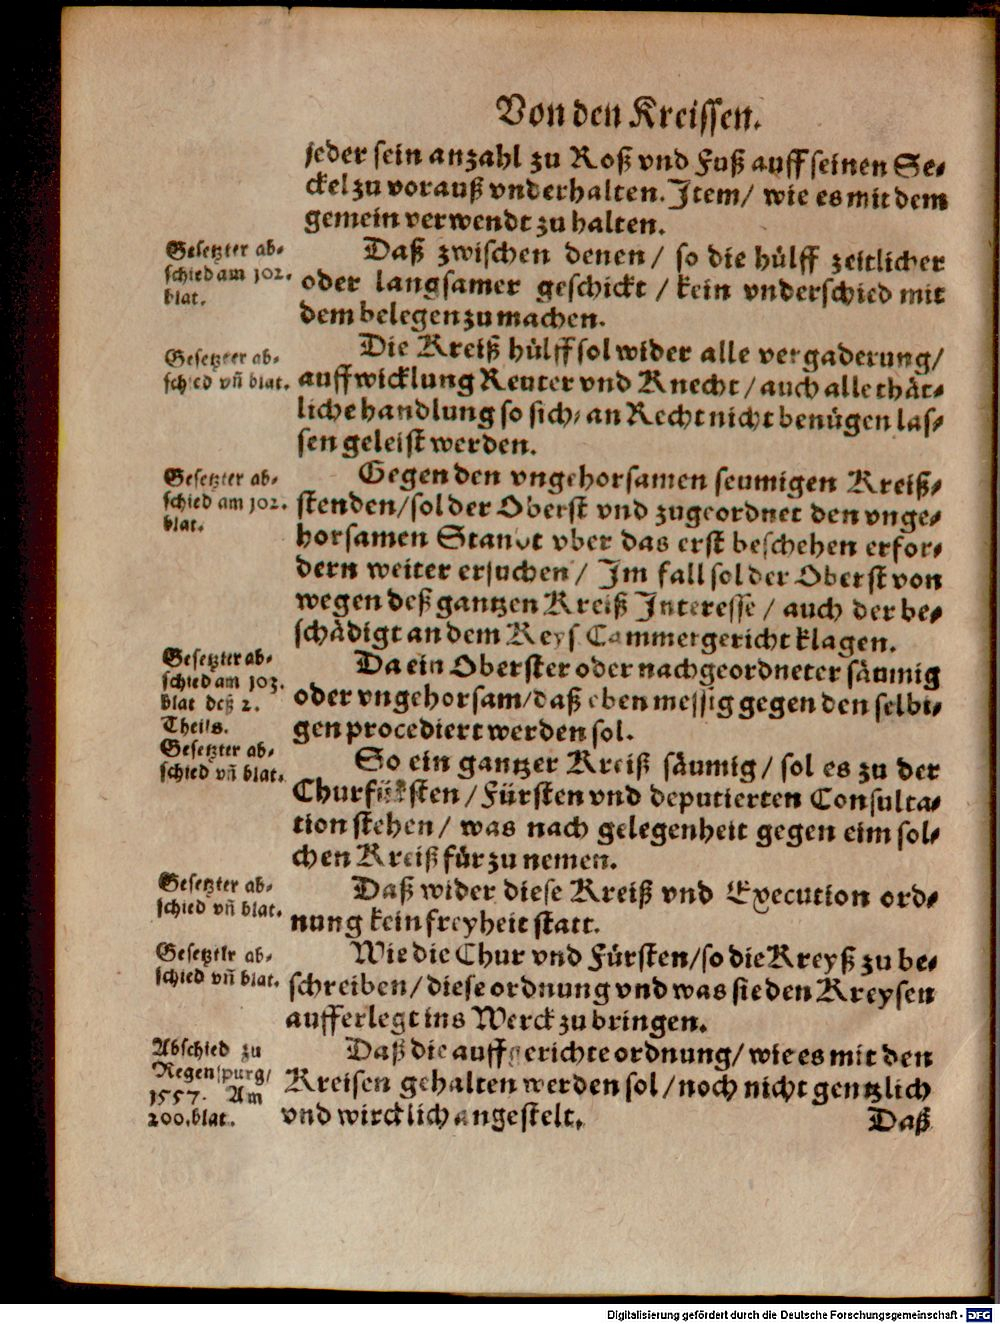 Von den Kreissen.
jeder sein anzahl zu Roß vnd Fuß auff seinen Se-
ckel zu vorauß vnderhalten. Item/ wie es mit dem
gemein verwendt zu halten.
Gesetzter ab-
schied am 102.
blat.
Daß zwischen denen / so die hülff zeitlicher
oder langsamer geschickt / kein vnderschied mit
dem belegen zu machen.
Gesetzter ab-
schied vñ blat.
Die Kreiß hülff sol wider alle vergaderung/
auffwicklung Reuter vnd Knecht / auch alle thät-
liche handlung so sich, an Recht nicht benügen las-
sen geleist werden.
Gesetzter ab-
schied am 102.
blat.
Gegen den vngehorsamen seumigen Kreiß-
stenden/sol der Oberst vnd zugeordnet den vnge-
horsamen Standt vber das erst beschehen erfor-
dern weiter ersuchen / Im fall sol der Oberst von
wegen deß gantzen Kreiß Interesse / auch der be-
schädigt an dem Keys Cammergericht klagen.
Gesetzter ab-
schied am 103.
blat deß 2.
Theils.
Da ein Oberster oder nachgeordneter säumig
oder vngehorsam/daß eben messig gegen den selbi-
gen procediert werden sol.
Gesetzter ab-
schied vñ blat.
So ein gantzer Kreiß säumig / sol es zu der
Churfürsten / Fürsten vnd deputierten Consulta-
tion stehen / was nach gelegenheit gegen eim sol-
chen Kreiß für zu nemen.
Gesetzter ab-
schied vñ blat.
Daß wider diese Kreiß vnd Execution ord-
nung kein freyheit statt.
Gesetzter ab-
schied vñ blat.
Wie die Chur vnd Fürsten/so die Kreyß zu be-
schreiben / diese ordnung vnd was sie den Kreysen
aufferlegt ins Werck zu bringen.
Abschied zu
Regenspurg/
1557. Am
200.blat.
Daß die auffgerichte ordnung/ wie es mit den
Kreisen gehalten werden sol / noch nicht gentzlich
vnd wircklich angestelt.
Daß
Digitalisierung gefördert durch die Deutsche Forschungsgemeinschaft - DFG